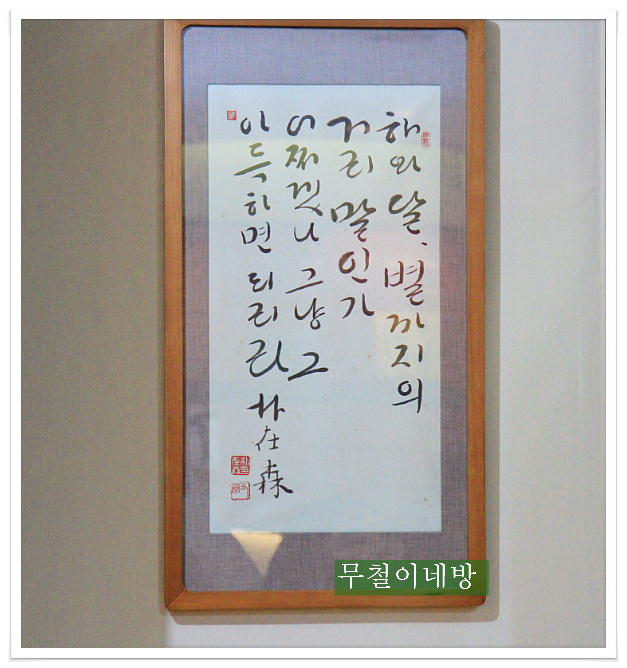 해와 달, 별까지의
거리 말인가
어쩌겠나 그냥 그
아득하면 되리라
朴在森
무철이네방